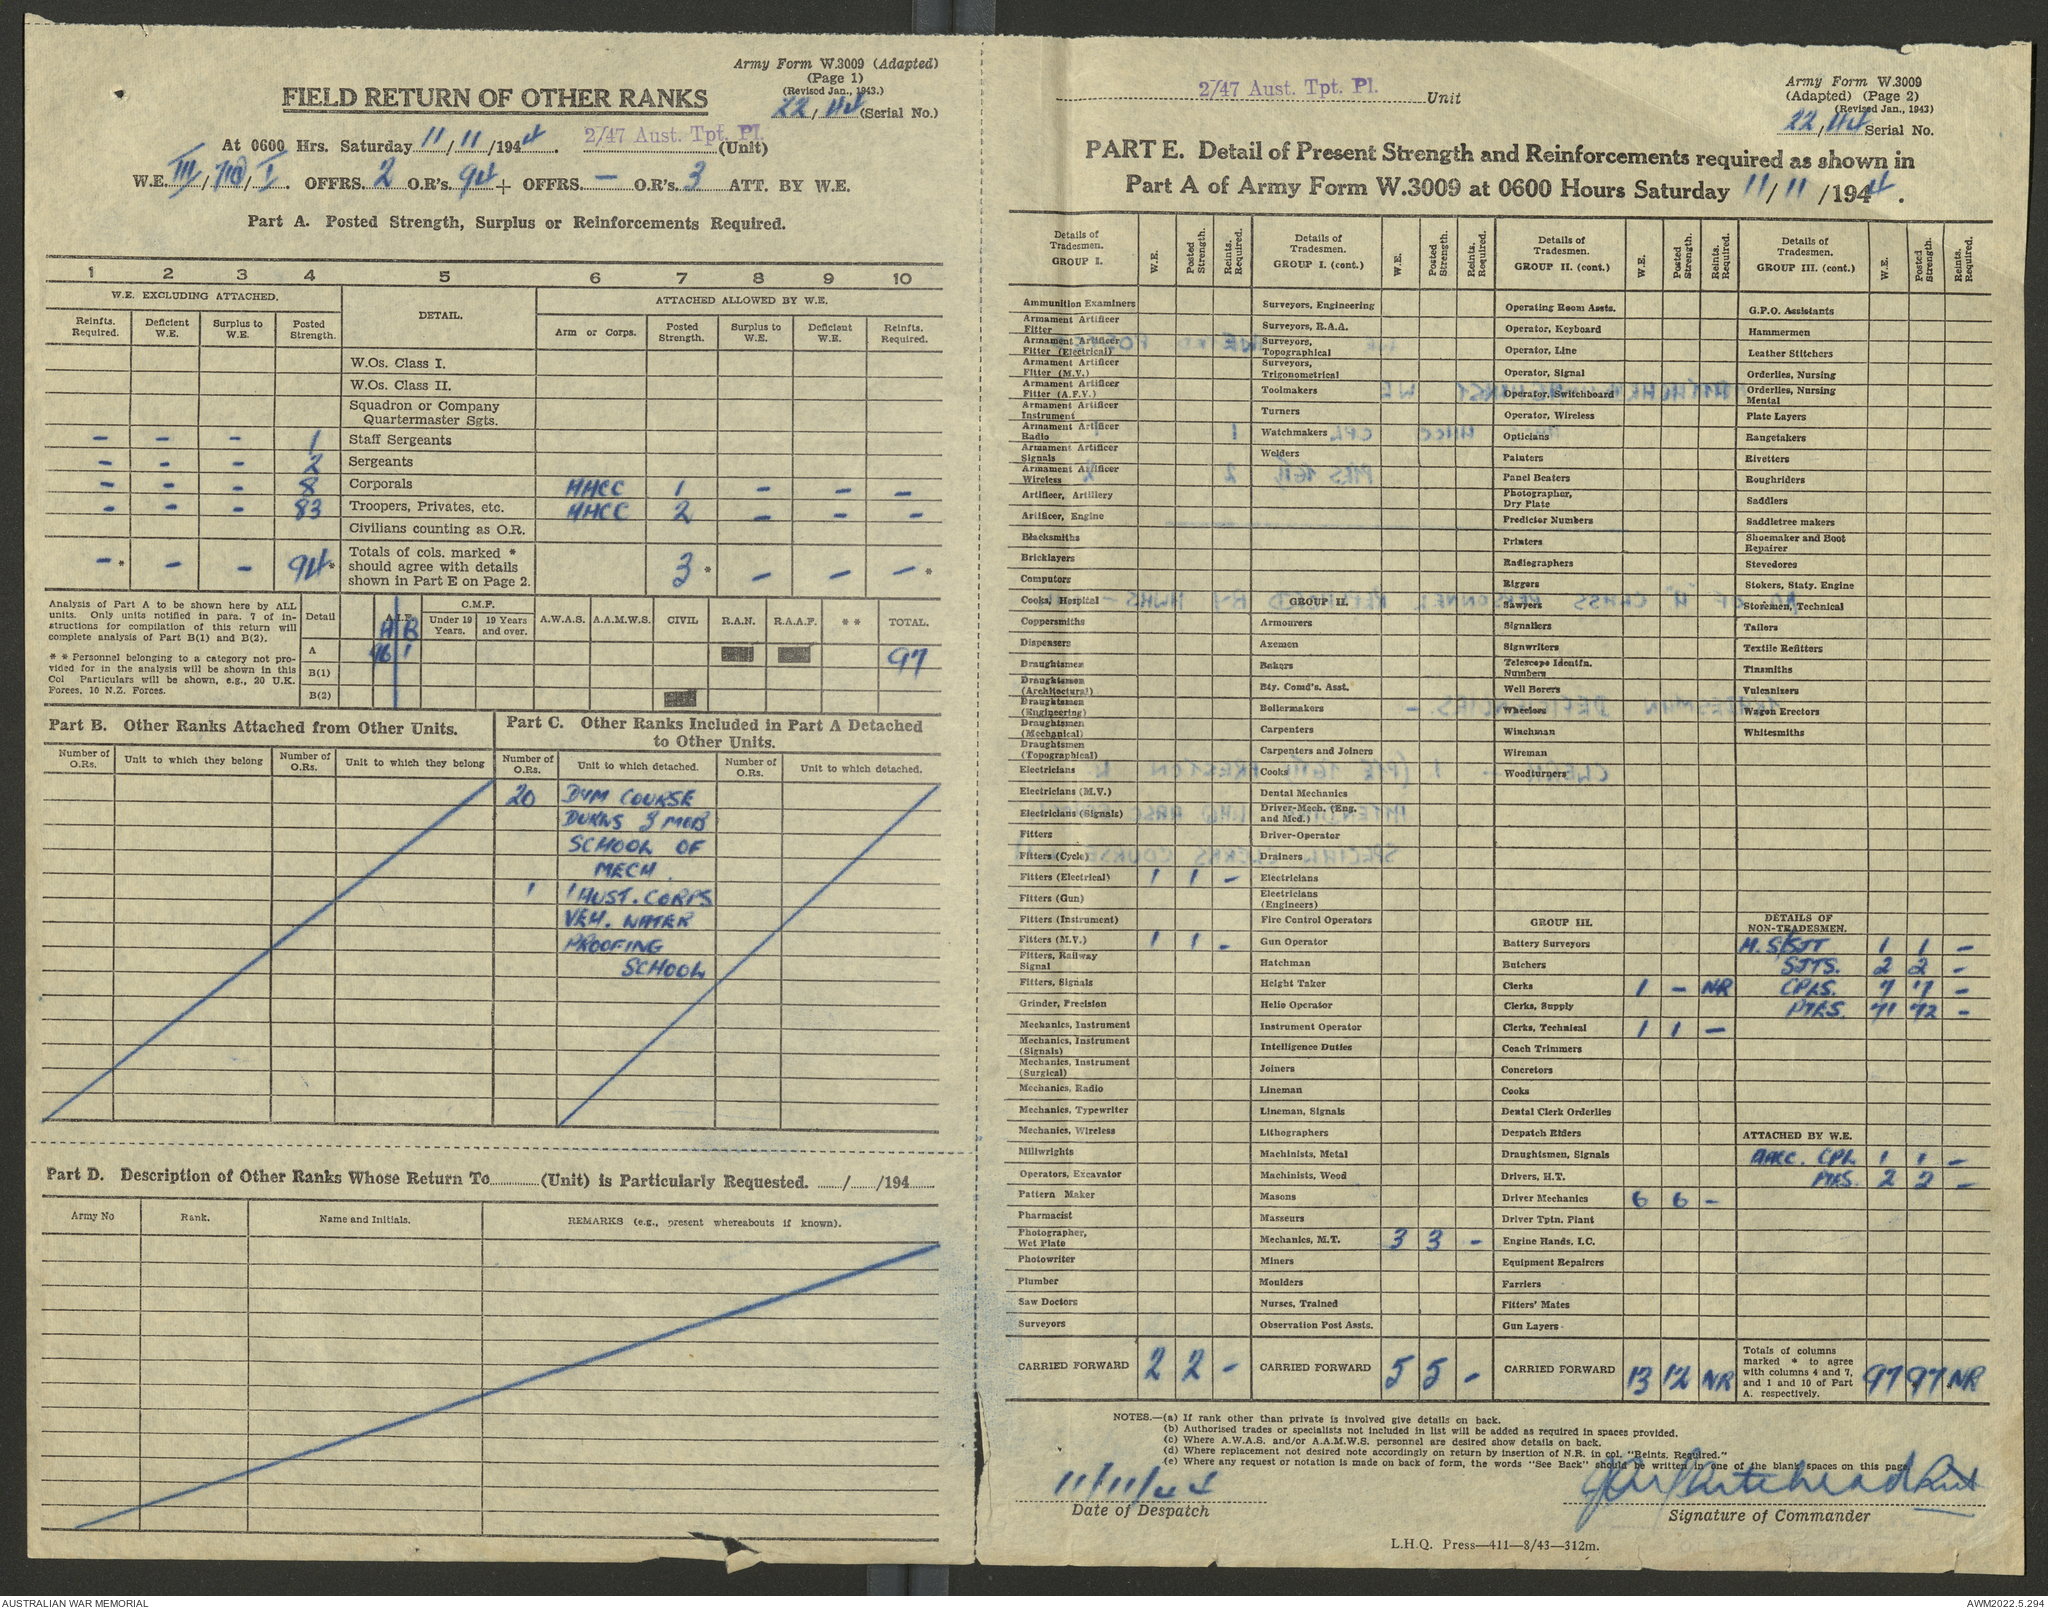 Army Form W.3009 (Adapted)
(Page 1)
(Revised Jan., 1943.)
22/44 (Serial No.)
FIELD RETURN OF OTHER RANKS
At 0600 Hrs. Saturday 11/11/1944. 2/47 Aust. Tpt. Pl. (Unit)
W.E. III/ /I. OFFRS. 2 O.R's. 94 + OFFRS. — O.R's. 3 ATT. BY W.E.
Part A. Posted Strength, Surplus or Reinforcements Required.
1 2 3 4 5 6 7 8 9 10
W.E. EXCLUDING ATTACHED. DETAIL. ATTACHED ALLOWED BY W.E.
Reinfts. Required. Deficient W.E. Surplus to W.E. Posted Strength. Arm or Corps. Posted Strength. Surplus to W.E. Deficient W.E. Reinfts. Required.
W.Os. Class I.
W.Os. Class II.
Squadron or Company Quartermaster Sgts.
– – – 1 Staff Sergeants
– – – 2 Sergeants
– – – 8 Corporals AACC 1 – – –
– – – 83 Troopers, Privates, etc. AACC 2 – – –
Civilians counting as O.R.
–* – – 94* Totals of cols. marked * should agree with details shown in Part E on Page 2. 3* – – –*
Analysis of Part A to be shown here by ALL
units. Only units notified in para. 7 of in-
structions for compilation of this return will
complete analysis of Part B(1) and B(2).
* * Personnel belonging to a category not pro-
vided for in the analysis will be shown in this
Col Particulars will be shown, e.g., 20 U.K.
Forces, 10 N.Z. Forces.
Detail A.I.F. A B C.M.F. Under 19 Years. 19 Years and over. A.W.A.S. A.A.M.W.S. CIVIL R.A.N. R.A.A.F. * * TOTAL.
A 96 1 97
B(1)
B(2)
Part B. Other Ranks Attached from Other Units.
Number of O.Rs. Unit to which they belong Number of O.Rs. Unit to which they belong
Part C. Other Ranks Included in Part A Detached
to Other Units.
Number of O.Rs. Unit to which detached. Number of O.Rs. Unit to which detached.
20 DVM COURSE
SCHOOL OF
MECH.
1 1 AUST. CORPS
VEH. WATER
PROOFING
SCHOOL
Part D. Description of Other Ranks Whose Return To (Unit) is Particularly Requested. / /194
Army No Rank. Name and Initials. REMARKS (e.g., present whereabouts if known).
2/47 Aust. Tpt. Pl. Unit
Army Form W.3009
(Adapted) (Page 2)
(Revised Jan., 1943)
22/44 Serial No.
PART E. Detail of Present Strength and Reinforcements required as shown in
Part A of Army Form W.3009 at 0600 Hours Saturday 11/11/1944.
Details of Tradesmen. GROUP I. W.E. Posted Strength. Reints. Required.
Ammunition Examiners
Armament Artificer Fitter
Armament Artificer Fitter (Electrical)
Armament Artificer Fitter (M.V.)
Armament Artificer Fitter (A.F.V.)
Armament Artificer Instrument
Armament Artificer Radio
Armament Artificer Signals
Armament Artificer Wireless
Artificer, Artillery
Artificer, Engine
Blacksmiths
Bricklayers
Computors
Cooks, Hospital
Coppersmiths
Dispensers
Draughtsmen
Draughtsmen (Architectural)
Draughtsmen (Engineering)
Draughtsmen (Mechanical)
Draughtsmen (Topographical)
Electricians
Electricians (M.V.)
Electricians (Signals)
Fitters
Fitters (Cycle)
Fitters (Electrical) 1 1 –
Fitters (Gun)
Fitters (Instrument)
Fitters (M.V.) 1 1 –
Fitters, Railway Signal
Fitters, Signals
Grinder, Precision
Mechanics, Instrument
Mechanics, Instrument (Signals)
Mechanics, Instrument (Surgical)
Mechanics, Radio
Mechanics, Typewriter
Mechanics, Wireless
Millwrights
Operators, Excavator
Pattern Maker
Pharmacist
Photographer, Wet Plate
Photowriter
Plumber
Saw Doctors
Surveyors
CARRIED FORWARD 2 2 –
Details of Tradesmen. GROUP I. (cont.) W.E. Posted Strength. Reints. Required.
Surveyors, Engineering
Surveyors, R.A.A.
Surveyors, Topographical
Surveyors, Trigonometrical
Toolmakers
Turners
Watchmakers
Welders
GROUP II.
Armourers
Axemen
Bakers
Bty. Comd's. Asst.
Boilermakers
Carpenters
Carpenters and Joiners
Cooks
Dental Mechanics
Driver-Mech. (Eng. and Med.)
Driver-Operator
Drainers
Electricians
Electricians (Engineers)
Fire Control Operators
Gun Operator
Hatchman
Height Taker
Helio Operator
Instrument Operator
Intelligence Duties
Joiners
Lineman
Lineman, Signals
Lithographers
Machinists, Metal
Machinists, Wood
Masons
Masseurs
Mechanics, M.T. 3 3 –
Miners
Moulders
Nurses, Trained
Observation Post Assts.
CARRIED FORWARD 5 5 –
Details of Tradesmen. GROUP II. (cont.) W.E. Posted Strength. Reints. Required.
Operating Room Assts.
Operator, Keyboard
Operator, Line
Operator, Signal
Operator, Switchboard
Operator, Wireless
Opticians
Painters
Panel Beaters
Photographer, Dry Plate
Predictor Numbers
Printers
Radiographers
Riggers
Sawyers
Signallers
Signwriters
Telescope Identfn. Numbers
Well Borers
Wheelers
Winchman
Wireman
Woodturners
GROUP III.
Battery Surveyors
Butchers
Clerks 1 – NR
Clerks, Supply
Clerks, Technical 1 1 –
Coach Trimmers
Concretors
Cooks
Dental Clerk Orderlies
Despatch Riders
Draughtsmen, Signals
Drivers, H.T.
Driver Mechanics 6 6 –
Driver Tptn. Plant
Engine Hands, I.C.
Equipment Repairers
Farriers
Fitters' Mates
Gun Layers
CARRIED FORWARD 13 12 NR
Details of Tradesmen. GROUP III. (cont.) W.E. Posted Strength. Reints. Required.
G.P.O. Assistants
Hammermen
Leather Stitchers
Orderlies, Nursing
Orderlies, Nursing Mental
Plate Layers
Rangetakers
Rivetters
Roughriders
Saddlers
Saddletree makers
Shoemaker and Boot Repairer
Stevedores
Stokers, Staty. Engine
Storemen, Technical
Tailors
Textile Refitters
Tinsmiths
Vulcanizers
Wagon Erectors
Whitesmiths
DETAILS OF NON-TRADESMEN.
A.S/SJT 1 1 –
SJTS. 2 2 –
CPLS. 7 7 –
PTES. 71 72 –
ATTACHED BY W.E.
AACC. CPL. 1 1 –
PTES. 2 2 –
Totals of columns marked * to agree with columns 4 and 7, and 1 and 10 of Part A. respectively. 97 97 NR
NOTES.—(a) If rank other than private is involved give details on back.
(b) Authorised trades or specialists not included in list will be added as required in spaces provided.
(c) Where A.W.A.S. and/or A.A.M.W.S. personnel are desired show details on back.
(d) Where replacement not desired note accordingly on return by insertion of N.R. in col. "Reints. Required."
(e) Where any request or notation is made on back of form, the words "See Back" should be written in one of the blank spaces on this page.
11/11/44
Date of Despatch
Whitehead Lieut
Signature of Commander
L.H.Q. Press—411—8/43—312m.
AUSTRALIAN WAR MEMORIAL
AWM2022.5.294